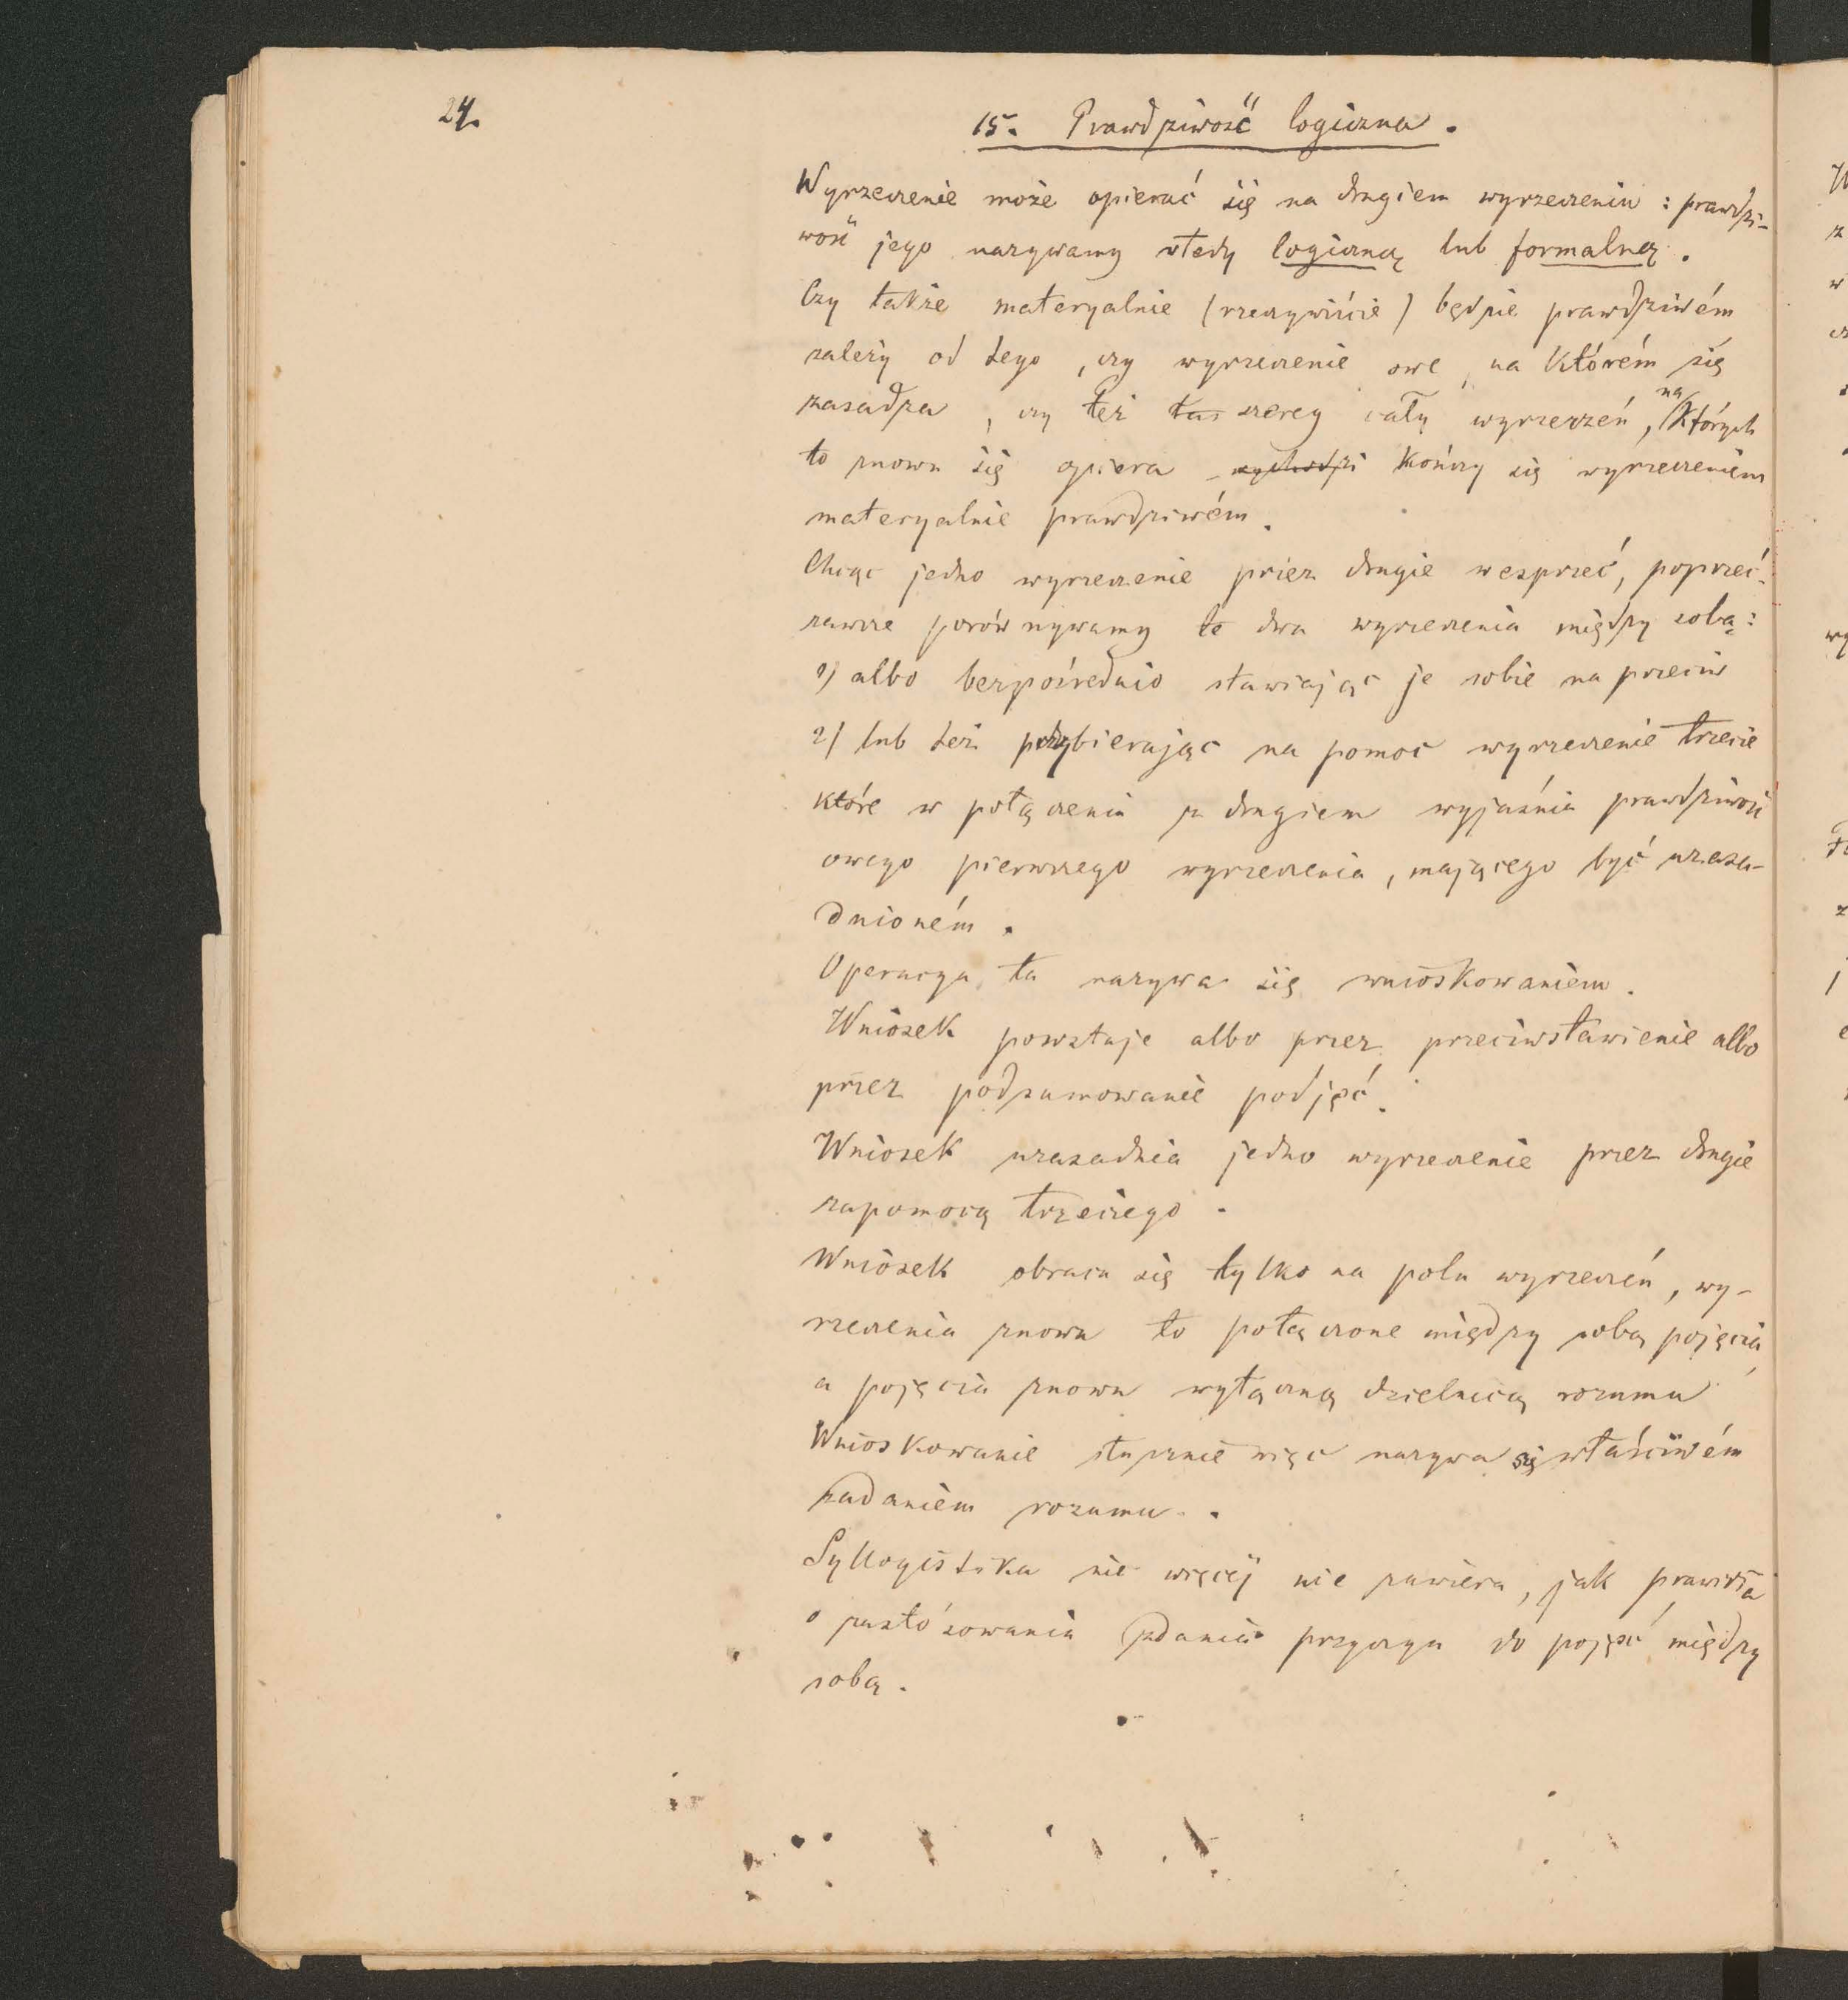 24.
15. Prawdziwość logiczna.
Wyrzeczenie może opierać się na drugiem wyrzeczeniu: prawdzi-
wość jego nazywamy wtedy logiczną lub formalną.
Czy także materyalnie (rzeczywiście) będzie prawdziwém
zależy od tego, czy wyrzeczenie owe, na którém się
zasadza, czy też szereg cały wyrzeczeń, na których
to znowu się opiera kończy się wyrzeczeniem
materyalnie prawdziwém.
Chcąc jedno wyrzeczenie przez drugie wesprzeć, poprzeć
zawsze porównywamy te dwa wyrzeczenia między sobą:
1) albo bezpośrednio stawiając je sobie na przeciw
2) lub też przybierając na pomoc wyrzeczenie trzecie
które w połączeniu z drugiem wyjaśnia prawdziwość
owego pierwszego wyrzeczenia, mającego być uzasa-
dnioném.
Operacya ta nazywa się wnioskowaniem.
Wniosek powstaje albo przez przeciwstawienie albo
przez podsumowanie podjęć.
Wniosek uzasadnia jedno wyrzeczenie przez drugie
zapomocą trzeciego.
Wniosek obraca się tylko na polu wyrzeczeń, wy-
rzeczenia znowu to połączone między sobą pojęcia,
a pojęcia znowu wyłączną dzielnicą rozumu
Wnioskowanie słusznie więc nazywa się właściwém
zadaniem rozumu.
Syllogistika nic więcéj nie zawiera, jak prawidła
o zastósowaniu zdania przyczyn do pojęć między
sobą.